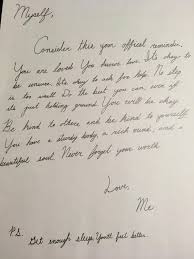 Myself,
Consider this your official reminder.
You are loved. You deserve love. Its okay to
be unsure. Its okay to ask for help. No step
is too small. Do the best you can, even if
its just holding ground. You will be okay.
Be kind to others and be kind to yourself.
You have a sturdy body, a rich mind, and a
beautiful soul. Never forget your worth.
Love,
Me
P.S. Get enough sleep. You'll feel better.